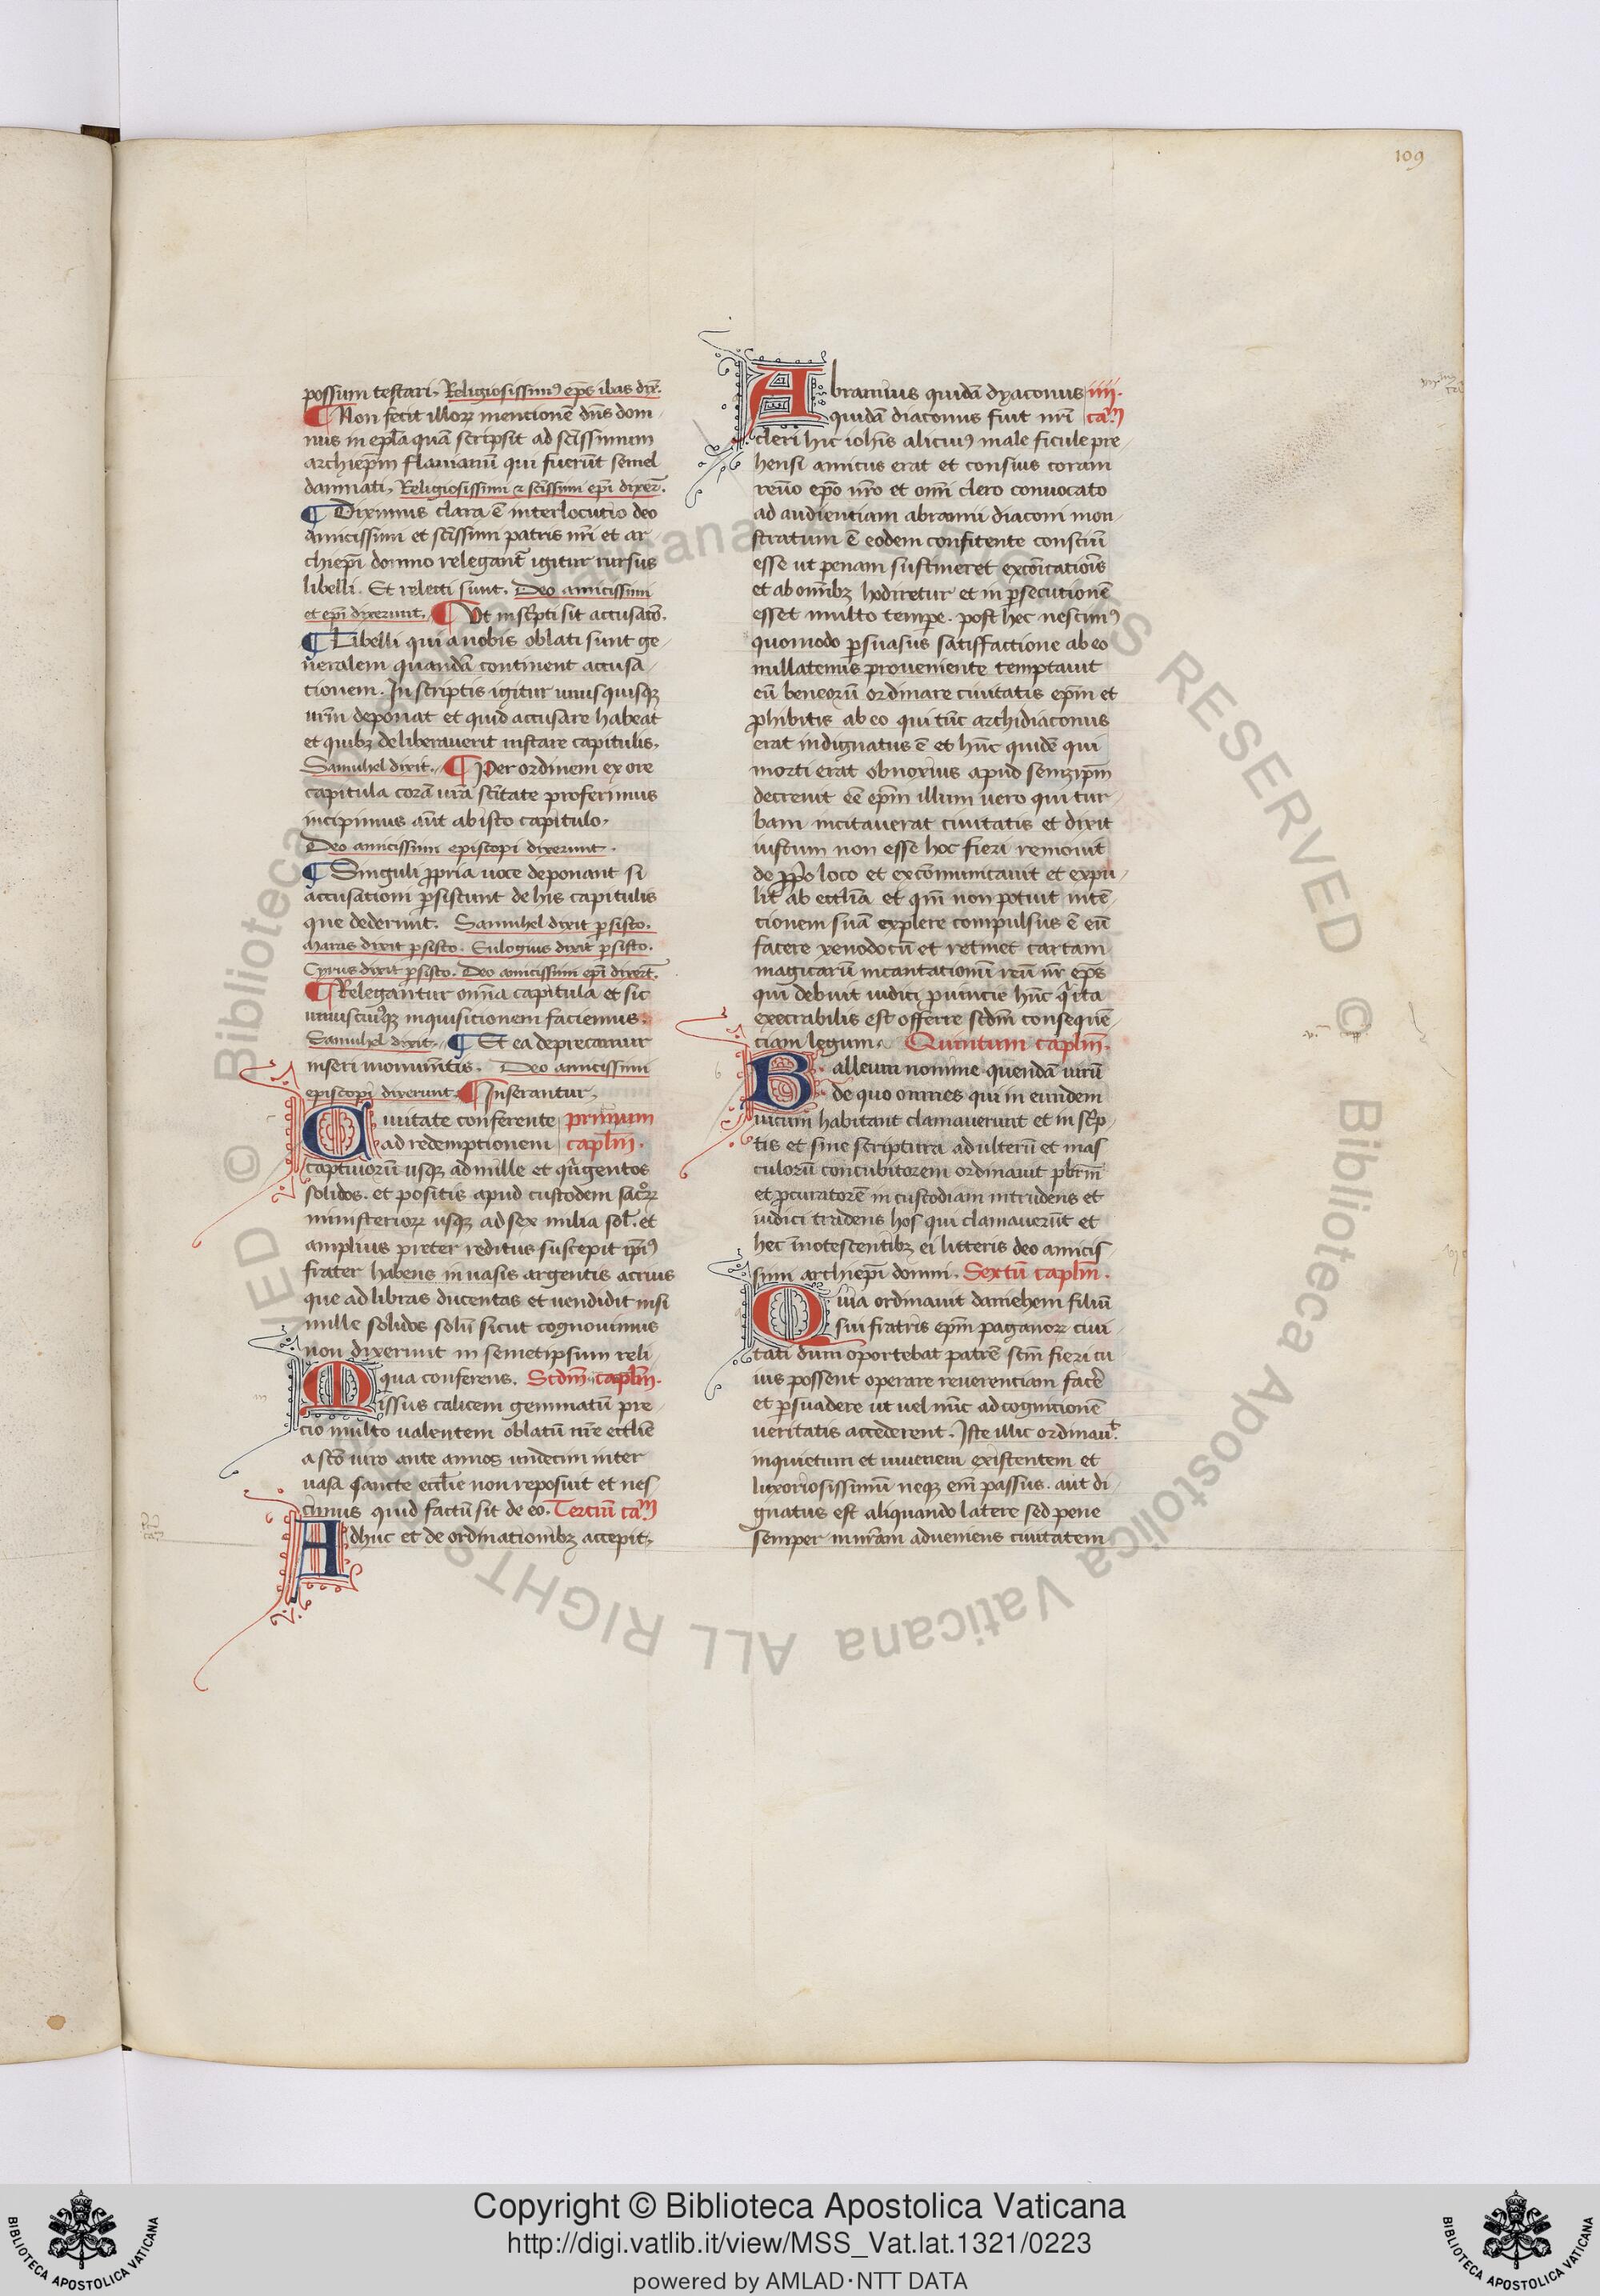 109
possum testari. Religiosissim⁹ ep̄s ibas dix̄.
¶ Non fecit illoꝝ mencionē dn̄s dom
nus in epl̄a quā scripsit ad scīssimum
archiep̄m flauianū qui fuerūt semel
damnati. Religiosissimi ⁊ scīssimi ep̄i dixer̄.
¶ Diximus clara ē interlocutio deo
amicissimi et scīssimi patris nr̄i et ar
chiep̄i domno relegant̄ igitur rursus
libelli. Et relecti sunt. Deo amicissimi
et ep̄i dixerunt. ¶ Vt inscr̄pti sit accusatō.
¶ Libelli qui a uobis oblati sunt ge
neralem quandā continent accusa
tionem. In scriptis igitur unusquisqꝫ
ur̄m deponat et quid accusare habeat
et quibꝫ deliberauerit instare capitulis.
Samuhel dixit. ¶ Per ordinem ex ore
capitula corā ur̄a scītate proferimus
incipimus aūt ab isto capitulo.
Deo amicissimi episcopi dixerunt.
¶ Singuli ꝓpria uoce deponant si
accusationi ꝑsistunt de his capitulis
que dederunt. Samuhel dixit ꝑsisto.
Maras dixit ꝑsisto. Eulogius dixit ꝑsisto.
Cyrus dixit ꝑsisto. Deo amicissimi ep̄i dixer̄t.
¶ Relegantur omīa capitula et sic
uniuscuiꝰqꝫ inquisicionem faciemus.
Samuhel dixit. ¶ Et ea deprecamur
inseri monumētis. Deo amicissimi
episcopi dixerunt. ¶ Inserantur.
Ciuitate conferente primum
ad redemptionem capl̄m.
captiuorū usqꝫ ad mille et qūigentos
solidos. et positis apud custodem sacroꝝ
ministerioꝝ usqꝫ ad sex milia sol̄. et
amplius preter reditus suscepit ip̄i⁹
frater habens in uasis argentis acrius
que ad libras ducentas et uendidit nisi
mille solidos solū sicut cognouimus
non dixerunt in semetipsum reli
qua conferens. Scdm̄ capl̄m.
Missus calicem gemmatū pre
cio multo ualentem oblatū nr̄e eccl̄ie
a scō uiro ante annos undecim inter
uasa sancte eccl̄ie non reposuit et nes
cimus quid factū sit de eo. Terciū caᵐ
Adhuc et de ordinationibꝫ accepit.
Abramius quidā dyaconus iiii.
quidā diaconus fuit nr̄i caᵐ
cleri hic ioh̄is alicui⁹ male ficule pre
hensi amicus erat et consius coram
reūo ep̄o nr̄o et omī clero conuocato
ad audientiam abramii diaconi mon
stratum ē eodem confitente consciū
esse ut penam sustineret excōicatiōis
et ab omībꝫ hodiretur et in ꝑsecutionē
esset multo tempe. post hec nescim⁹
quomodo ꝑsuasus satisffactione ab eo
nullatenus proueniente temptauit
eū beneorū ordinare ciuitatis ep̄m et
ꝓhibitis ab eo qui tūc archidiaconus
erat indignatus ē et hūc quidē qui
morti erat obnoxius apud semꝫip̄m
decreuit eē ep̄m illum uero qui tur
bam incitauerat ciuitatis et dixit
iustum non esse hoc fieri remouit
de ꝓp̄o loco et excōmunicauit et expu
lit ab eccl̄ia et qm̄ non potuit intē
cionem suā explere compulsus ē eū
facere xenodocū et retinet cartam
magicarū incantationū reū nr̄ ep̄s
qui debuit iudici ꝓuincie hūc q̄ ita
execrabilis est offerre scdm̄ consequē
ciam legum. Quintum capl̄m.
Balleum nomine quendā uirū
de quo omnes qui in eundem
uicum habitant clamauerunt et in scr̄p
tis et sine scriptura adulterū et mas
culorū concubitorem ordinauit pb̄rm̄
et ꝓcuratorē in custodiam intrudens et
iudici tradens hos qui clamauerūt et
hec īnotescentibꝫ ei litteris deo amicis
simi archiep̄i domni. Sextū capl̄m.
Quia ordinauit danielem filiū
sui fratris ep̄m paganoꝝ ciui
tati dum oportebat patrē scm̄ fieri cu
ius possent operare reuerenciam facē
et ꝑsuadere ut uel nūc ad cognicionē
ueritatis accederent. Iste illic ordinaū
inquietum et iuuenem existentem et
luxoriosissimū neqꝫ em̄ passus. aut di
gnatus est aliquando latere sed pene
semper in ur̄am adueniens ciuitatem
Copyright © Biblioteca Apostolica Vaticana
http://digi.vatlib.it/view/MSS_Vat.lat.1321/0223
powered by AMLAD·NTT DATA
BIBLIOTECA APOSTOLICA VATICANA
BIBLIOTECA APOSTOLICA VATICANA
© Biblioteca Apostolica Vaticana ALL RIGHTS RESERVED